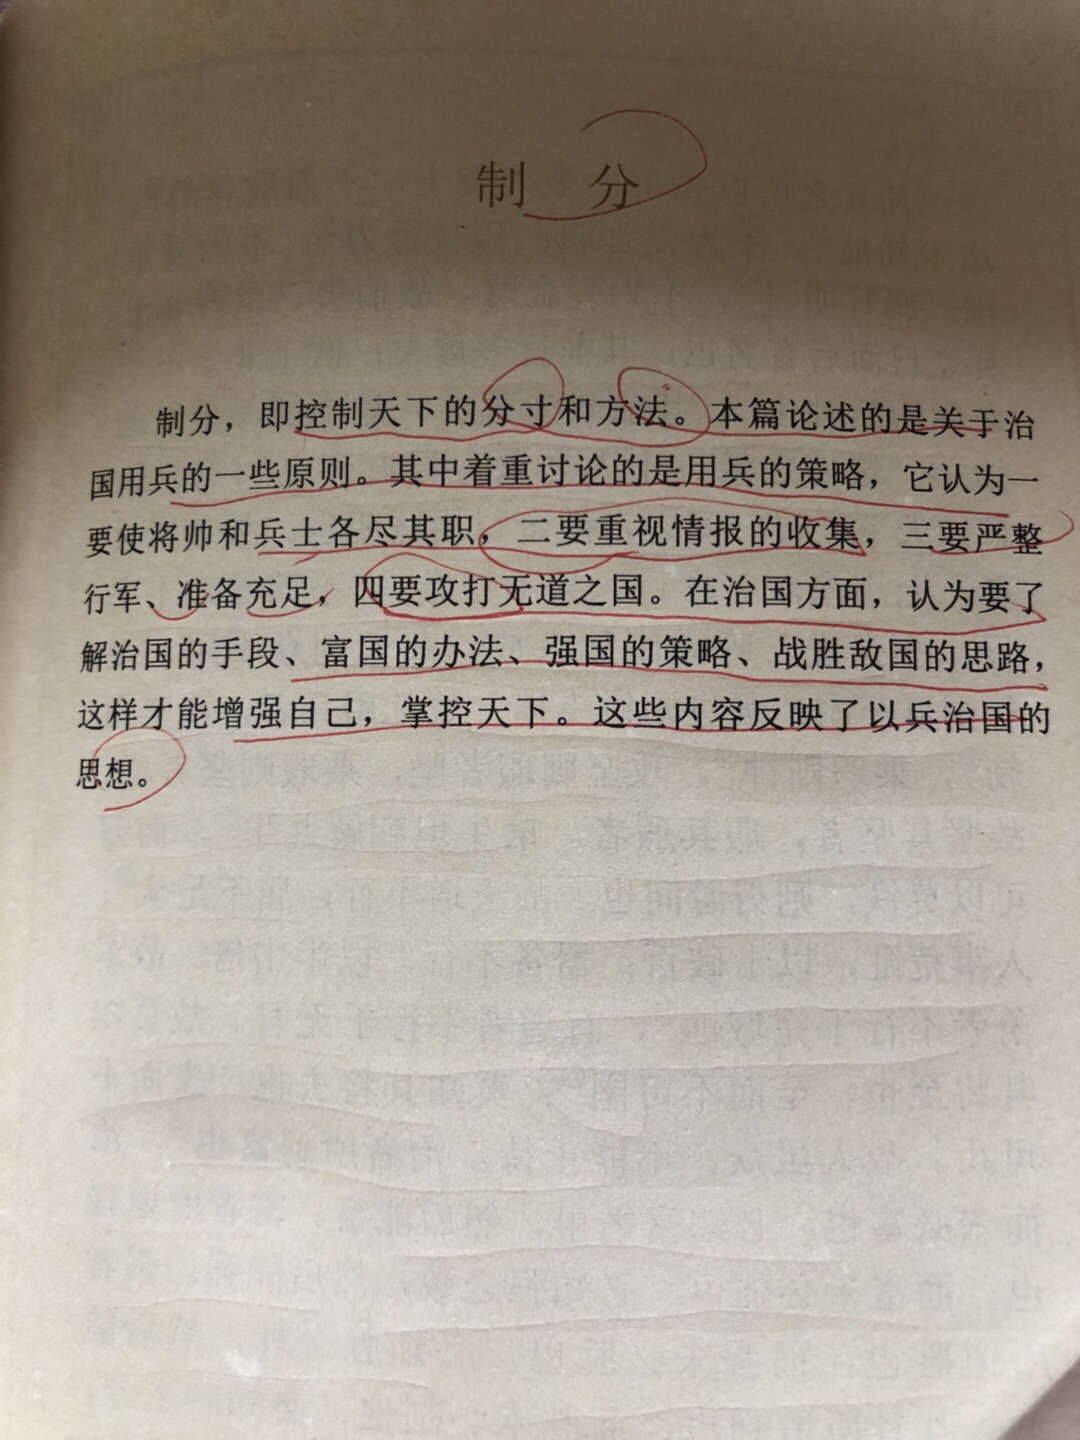 制 分
制分，即控制天下的分寸和方法。本篇论述的是关于治
国用兵的一些原则。其中着重讨论的是用兵的策略，它认为一
要使将帅和兵士各尽其职，二要重视情报的收集，三要严整
行军、准备充足，四要攻打无道之国。在治国方面，认为要了
解治国的手段、富国的办法、强国的策略、战胜敌国的思路，
这样才能增强自己，掌控天下。这些内容反映了以兵治国的
思想。